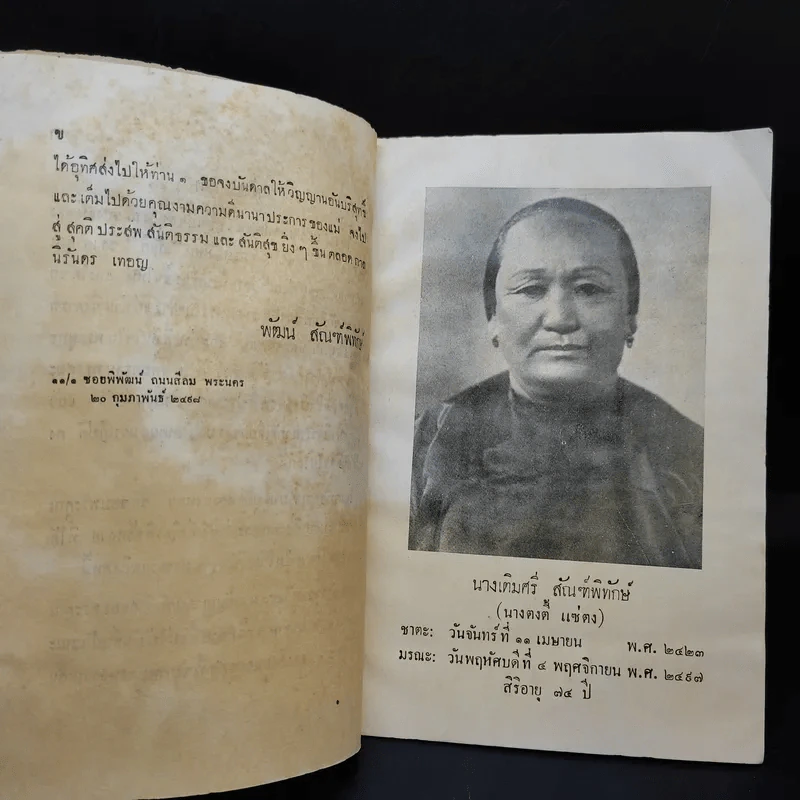 ข
ได้อุทิศส่งไปให้ท่าน ๆ ขอจงบันดาลให้วิญญาณอันบริสุทธิ์
และเต็มไปด้วยคุณงามความดีนานาประการของแม่ จงไป
สู่ สุคติ ประสพ สันติธรรม และ สันติสุข ยิ่ง ๆ ขึ้น ตลอด กาล
นิรันดร เทอญ
พัฒน์ สัณฑ์พิทักษ์
๑๑/๑ ซอยพิพัฒน์ ถนนสีลม พระนคร
๒๐ กุมภาพันธ์ ๒๔๙๘
นางเติมศรี สัณฑ์พิทักษ์
(นางตงตี้ แซ่ตง)
ชาตะ: วันจันทร์ที่ ๑๑ เมษายน พ.ศ. ๒๔๒๓
มรณะ: วันพฤหัศบดีที่ ๔ พฤศจิกายน พ.ศ. ๒๔๙๗
สิริอายุ ๗๔ ปี